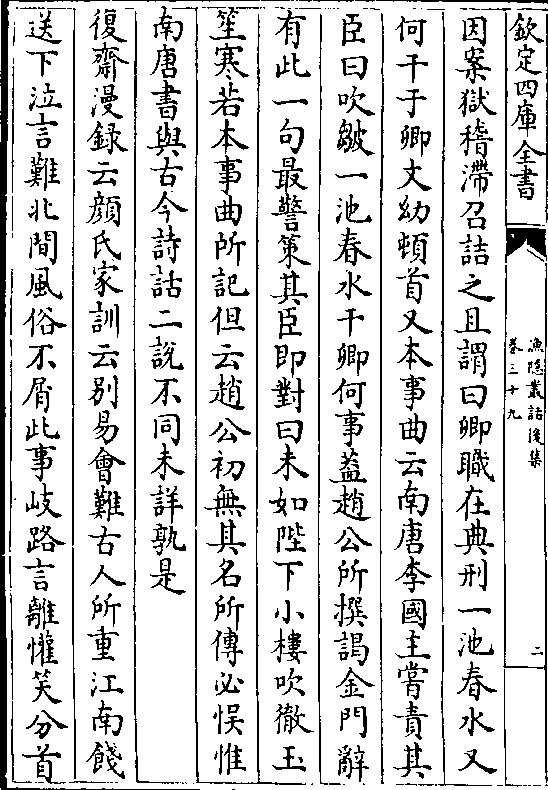 欽定四庫全書
漁隱叢話後集
卷三十九
二
因案獄稽滯召詰之且謂曰卿職在典刑一池春水又
何干于卿文幼頓首又本事曲云南唐李國主嘗責其
臣曰吹皺一池春水干卿何事葢趙公所撰謁金門辭
有此一句最警策其臣即對曰未如陛下小樓吹徹玉
笙寒若本事曲所記但云趙公初無其名所傳必悮惟
南唐書與古今詩話二說不同未詳孰是
復齋漫録云顔氏家訓云别易會難古人所重江南餞
送下泣言難北間風俗不屑此事岐路言離懽笑分首